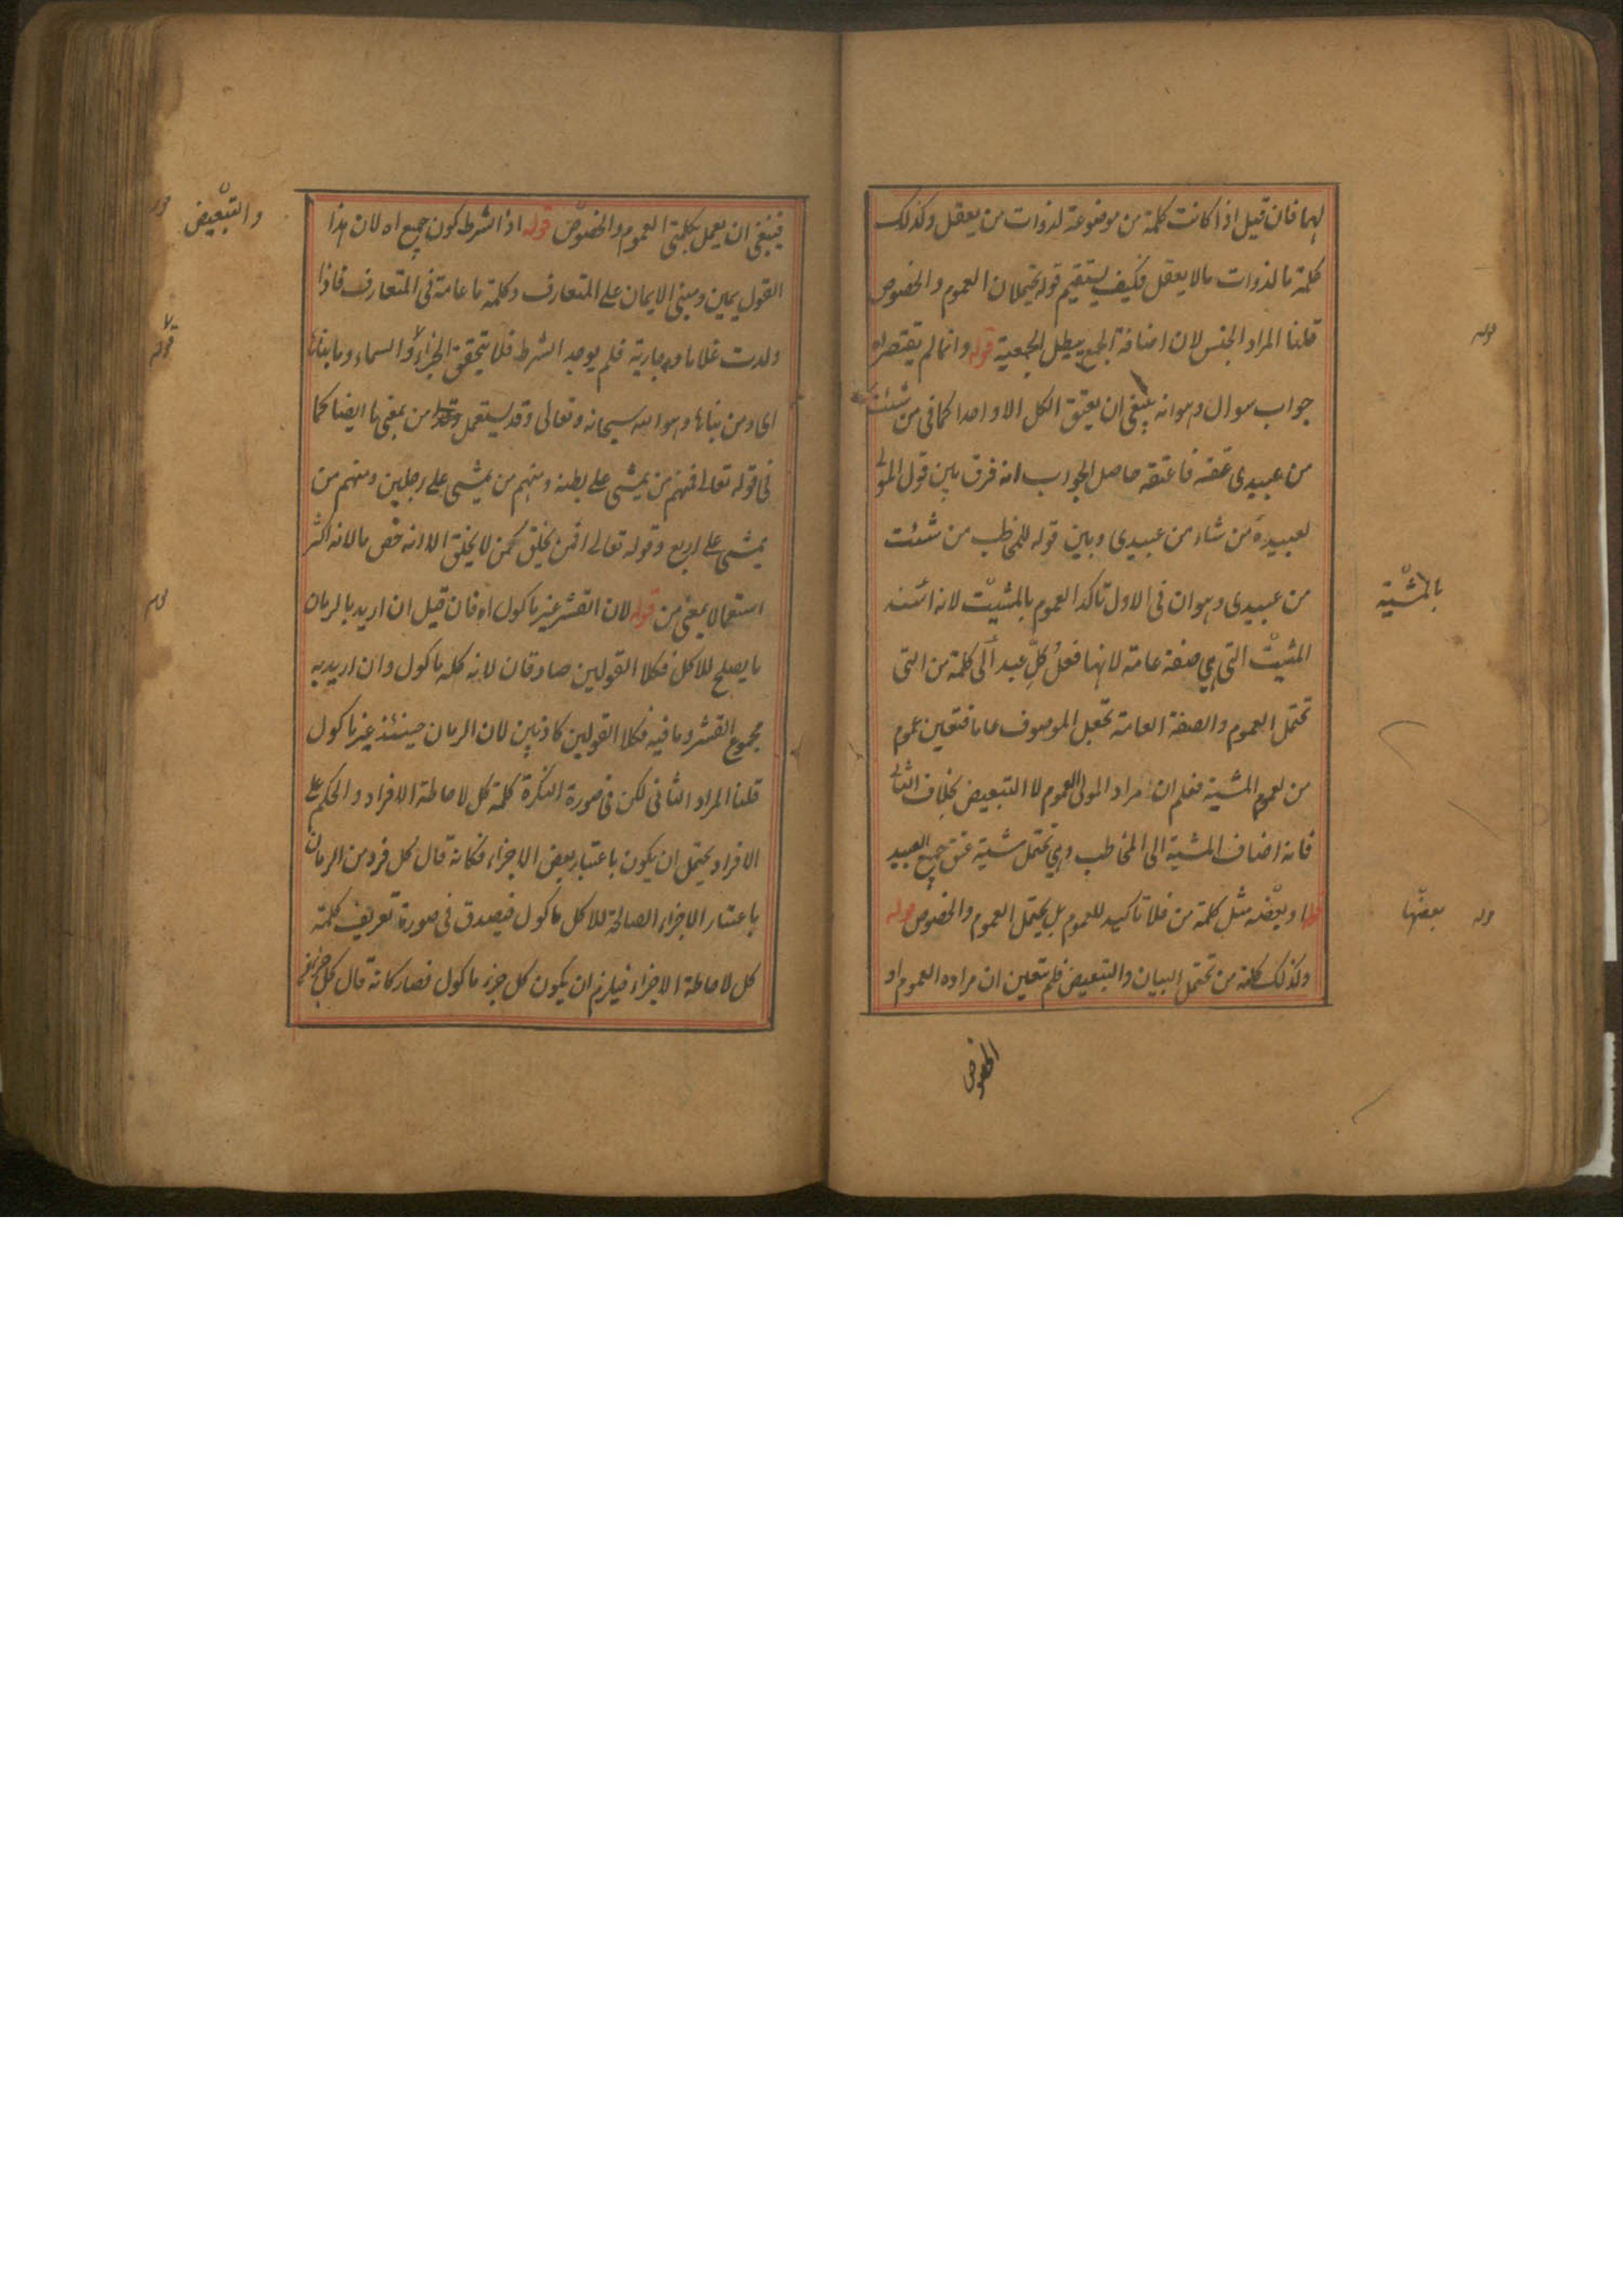 لهما فان قيل اذا كانت كلمة من موضوعة لذوات من يعقل وكذلك
كلمة ما لذوات مالا يعقل فكيف يستقيم قوله يحتملان العموم والخصوص
قلنا المراد الجنس لان اضافة الجمع يبطل الجمعية قوله وانما لم يقتصر اه
جواب سوال وهو انه ينبغى ان يعتق الكل الا واحدا كما فى من شئت
من عبيدى عتقه فاعتقه حاصل الجواب انه فرق بين قول المولى
لعبيده من شاء من عبيدى وبين قوله للمخاطب من شئت
من عبيدى وهو ان فى الاول تاكد العموم بالمشيت لانه اسند
المشيت التى هى صفة عامة لانها فعل كل عبد الى كلمة من التى
تحتمل العموم والصفة العامة تجعل الموصوف عاما فتعين عموم
من لعموم المشية فعلم ان مراد المولى العموم لا التبعيض بخلاف الثانى
فانه اضاف المشية الى المخاطب وهى تحتمل مشية عتق جميع العبيد
وبعضه مثل كلمة من فلا تاكيد للعموم بل يحتمل العموم والخصوص قوله
وكذلك كلمة من تحتمل البيان والتبعيض فلم يتعين ان مراده العموم او
الخصوص
قوله
بالمشية
قوله بعضها
فينبغى ان يعمل بكلمتى العموم والخصوص قوله اذ الشرط كون جميع اه لان هذا
القول يمين ومبنى الايمان على المتعارف وكلمة ما عامة فى المتعارف فاذا
ولدت غلاما وجارية فلم يوجد الشرط فلا يتحقق الجزاء والسماء وما بناها
اى ومن بناها وهو الله سبحانه وتعالى وقد يستعمل من بمعنى ما ايضا كما
فى قوله تعالى فمنهم من يمشى على بطنه ومنهم من يمشى على رجلين ومنهم من
يمشى على اربع وقوله تعالى افمن يخلق كمن لا يخلق الا انه خص ما لانه اكثر
استعمالا بمعنى من قوله لان القشر غير ماكول اه فان قيل ان اريد بالرمان
ما يصلح للاكل فكلا القولين صادقان لانه كله ماكول وان اريد به
مجموع القشر وما فيه فكلا القولين كاذبين لان الرمان حينئذ غير ماكول
قلنا المراد الثانى لكن فى صورة النكرة كلمة كل لاحاطة الافراد والحكم على
الافراد يحتمل ان يكون باعتبار بعض الاجزاء فكانه قال كل فرد من الرمان
باعتبار الاجزاء الصالحة للاكل ماكول فيصدق فى صورة تعريف كلمة
كل لاحاطة الاجزاء فيلزم ان يكون كل جزء ماكول فصار كانه قال كل جزء
والتبعيض
قوله